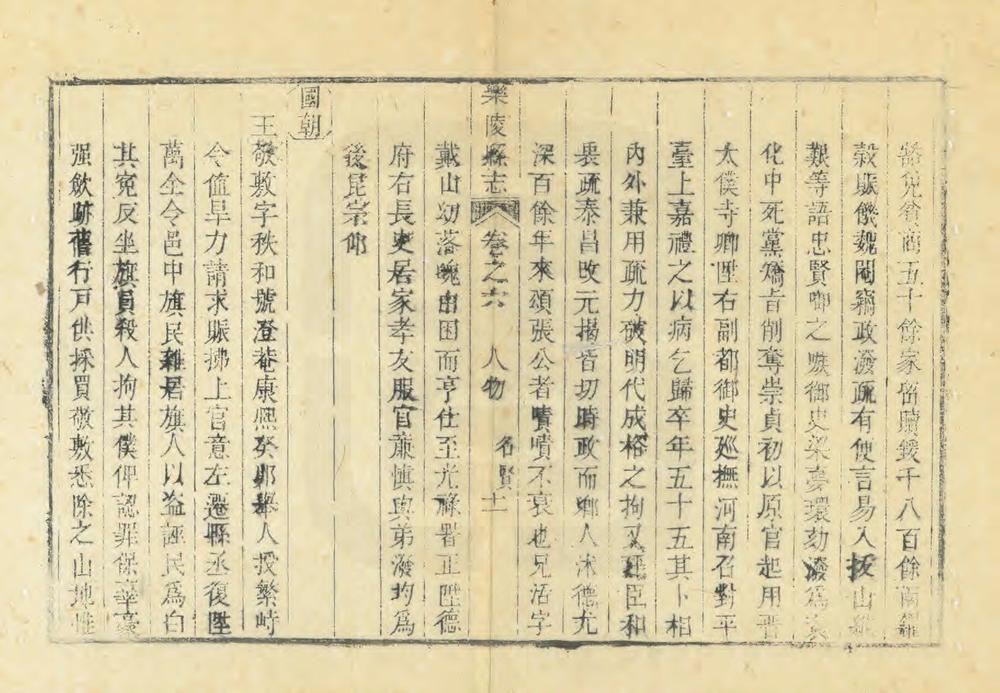 豁免貧商五十餘家留贖鍰千八百餘兩糴
穀賑饑魏閹竊政潑疏有使言易入拔山維
艱等語忠賢啣之嗾御史梁夢環劾潑爲
化中死黨矯旨削奪崇貞初以原官起用晋
太僕寺卿陞右副都御史廵撫河南召對平
臺上嘉禮之以病乞歸卒年五十五其卜相
内外兼用疏力破明代成格之拘又疏臣和
衷疏泰昌改元揭皆切時政而鄉人沐德尤
深百餘年來頌張公者嘖嘖不衰也兄活字
樂陵縣志 卷之六 人物 名賢 十一
戴山幼落魄由困而亨仕至光祿署正陞德
府右長史居家孝友服官廉慎與弟潑均爲
後昆崇仰
國朝
王敬敷字秩和號澄菴康熙癸卯舉人授繁峙
令值旱力請求賑拂上官意左遷縣丞復陞
萬全令邑中旗民雜居旗人以盜誣民爲白
其寃反坐旗員殺人拘其僕俾認罪保華豪
强歛跡舊行戸供採買敬敷悉除之山地惟